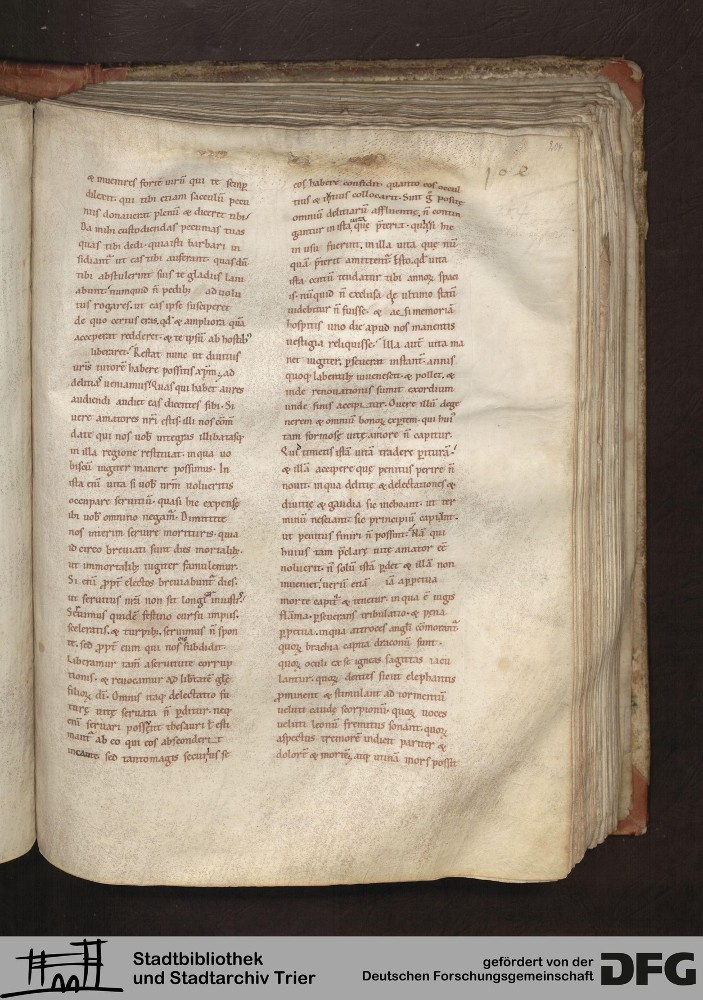 204
& inuenires forte uirū qui te semp
dilexit. qui tibi etiam sacculū pecu
niis donauerat plenū & diceret tibi
Da mihi custodiendas pecunias tuas
quas tibi dedi. quia isti barbari in
sidiant ut eas tibi auferant. quasdā
tibi abstulerunt suis te gladiis lani
abunt. nunquid n̄ pedib; aduolu
tus rogares. ut eas ipse susciperet
de quo certus eras. qd & ampliora quā
acceperat redderet. & te ipsū ab hostib;
liberaret. Restat nunc ut diuitiis
uris tutorē habere possitis xpm; ad
delitias ueniamus. Quas qui habet aures
audiendi audiet eas dicentes sibi. Si
uere amatores nri estis. illi nos cōm
date qui nos uob integras illibatasq
in illa regione restituat. in qua uo
biscū iugiter manere possimus. In
ista enī uita si uob nrm uolueritis
occupare seruitiū. quasi hic expense
ibi uob omnino negam. Dimittite
nos interim seruire morituris. quia
idcirco breuiati sunt dies mortalib.
ut immortalib; iugiter famulemur.
Si enī ppt electos breuiabunt dies.
ut seruitus nra non sit longior iniustis.
Seruimus quidē festino cursu impiis.
sceleratis. & turpib; seruimus n̄ spon
te. sed ppt eum qui nos subdidit.
Liberamur tam a seruitute corrup
tionis. & reuocamur ad libtatē glę
filior di. Omnis itaq delectatio fu
turę uitę seruata n̄ pditur. neq
enī seruari possent thesauri t esti
mant ab eo qui eos absconderit
incaute sed tantomagis securius se
eos habere confidit. quanto eos occul
tius & tutius collocarit. Sunt g posite
omniū delitiarū affluentię. n̄ contin
gantur in ista uita que pterit. quasi hic
in usu fuerint. in illa uita que nū
quā pterit amittent. Esto. qd uita
ista centū tendatur tibi annor spaci
is. nūquid n̄ exclusa de ultimo statu
uidebitur n̄ fuisse. & ac si memoriā
hospitis uno die apud nos manentis
uestigia reliquisse. Illa aut uita ma
net iugiter. pseuerat instant. annis
quoq labentib; iuuenescit. & pollet. &
inde renouationis sumit exordium
unde finis accipitur. Quere illū dege
nerem & omniū bonor exptem. qui hui
tam formosę uitę amore n̄ capitur.
Qui timetis istā uitā tradere piturā.
& illā accipere quę penitus perire n̄
nouit. in qua delitię & delectationes &
diuitię & gaudia sic inchoant. ut ter
minū nesciant. sic principiū capiant.
ut penitus finiri n̄ possint. Nā qui
huius tam pclarę uitę amator eē
noluerit. n̄ solū istā pdet & illā non
inueniet. uerū etiā a ppetua
morte capit & tenetur. in qua ē iugis
flāma. pseuerans tribulatio. & pena
ppetua. in qua atroces angli cōmorant
quor brachia capita draconū sunt.
quor oculi ex se igneas sagittas iacu
lantur. quor dentes sicut elephantis
prominent & stimulant ad tormentū
ueluti caudę scorpionū. quor uoces
ueluti leonū fremitus sonant. quor
aspectus tremorē indicit pariter &
dolorē & mortē. atq utinā mors possit
Stadtbibliothek
und Stadtarchiv Trier
gefördert von der
Deutschen Forschungsgemeinschaft
DFG